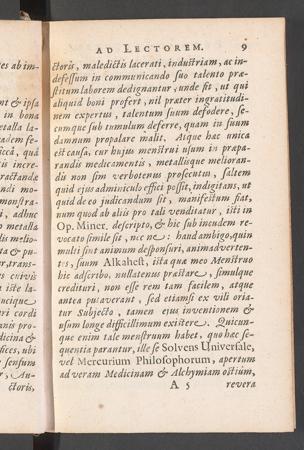 es ab im-
nt & ipsa
in bona
etalla la-
eadem fe-
siccâ, quâ
is incre-
ractandæ
ndi mo-
monstra-
i, adhuc
o metalla
lis melio-
ta & pu-
r, trans-
s cuivis
t iste la-
ucique
eri cordi
anis pro-
dicina &
fices, ubi
e sensum
r, Au-
ctoris,
AD LECTOREM. 9
ctoris, maledictis lacerati, industriam, ac in-
defessum in communicando suo talento præ-
stitum laborem dedignantur, unde fit, ut qui
aliquid boni profert, nil præter ingratitudi-
nem expertus, talentum suum defodere, se-
cumque sub tumulum deferre, quam in suum
damnum propalare malit. Atque hæc unica
est causa, cur hujus menstrui usum in præpa-
randis medicamentis, metallisque melioran-
dis non sim verbotenus prosecutus, saltem
quid ejus adminiculo effici possit, indigitans, ut
quid de eo judicandum sit, manifestum fiat,
num quod ab aliis pro tali venditatur, isti in
Op. Miner. descripto, & hic sub incudem re-
vocato simile sit, nec ne: haud ambigo, quin
multi sint animum desponsuri, animadverten-
tes, suum Alkahest, ista quæ meo Menstruo
hic adscribo, nullatenus præstare, simulque
credituri, non esse rem tam facilem, atque
antea putaverant, sed etiamsi ex vili oria-
tur Subjecto, tamen ejus inventionem &
usum longe difficillimum existere. Quicun-
que enim tale menstruum habet, quo hæc se-
quentia parantur, ille se Solvens Universale,
vel Mercurium Philosophorum, apertum
ad veram Medicinam & Alchymiam ostium,
A 5 revera